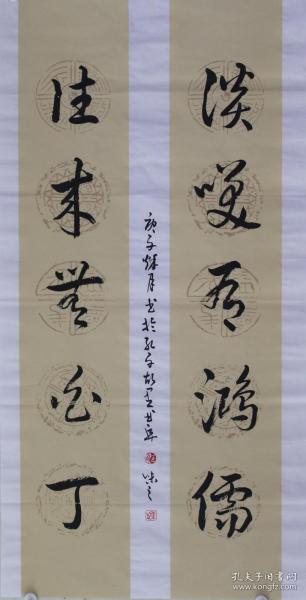 談咲有鴻儒
往來無白丁
庚子 月书於孔子故里
孔夫子旧书网